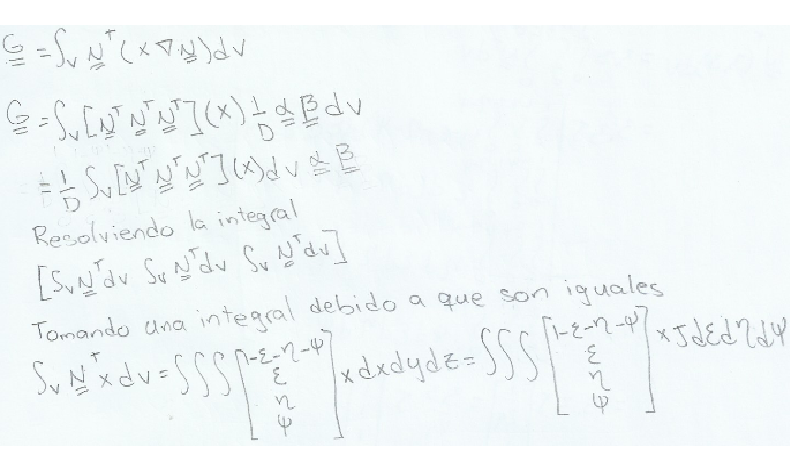 G = ∫ᵥ Nᵀ (x ∇ N) dV
G = ∫ᵥ [Nᵀ Nᵀ Nᵀ] (x) 1/D α B dv
= 1/D ∫ᵥ [Nᵀ Nᵀ Nᵀ] (x) dv α B
Resolviendo la integral
[∫ᵥ Nᵀ dv ∫ᵥ Nᵀ dv ∫ᵥ Nᵀ dv]
Tomando una integral debido a que son iguales
∫ᵥ Nᵀ x dv = ∫∫∫ [1-ε-η-ψ; ε; η; ψ] x dx dy dz = ∫∫∫ [1-ε-η-ψ; ε; η; ψ] x J dε dη dψ